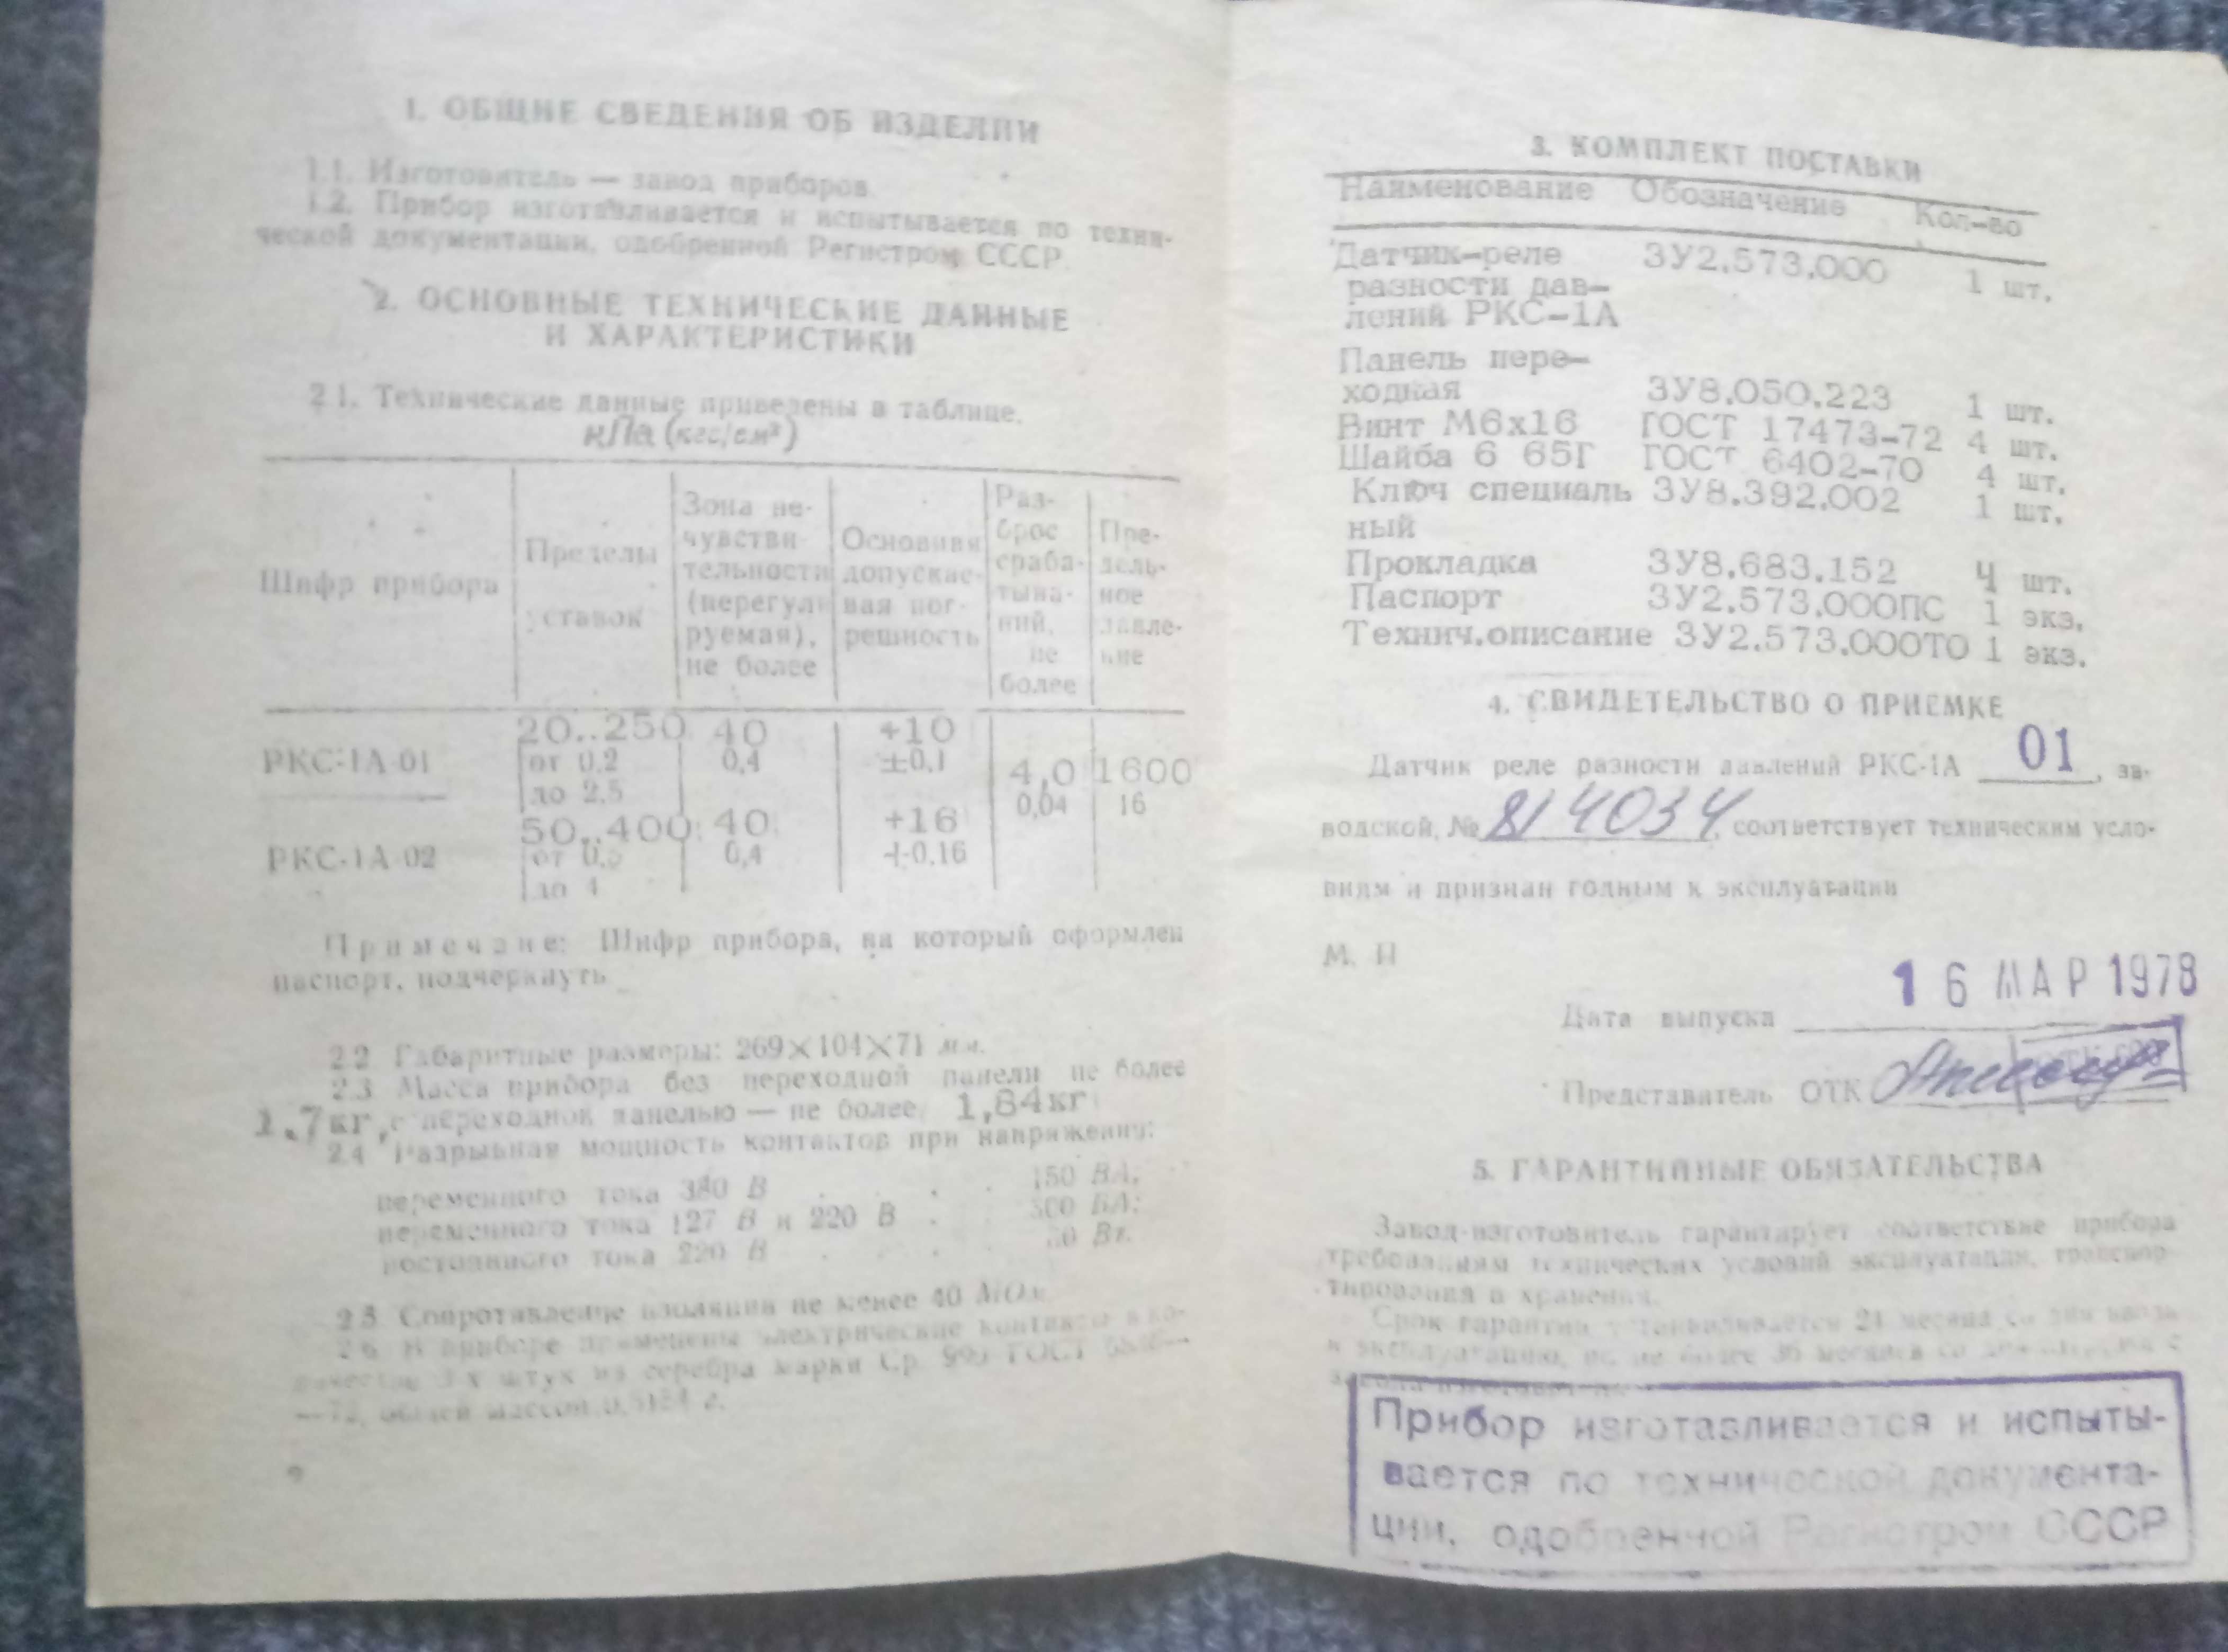 1. ОБЩИЕ СВЕДЕНИЯ ОБ ИЗДЕЛИИ
1.1. Изготовитель — завод приборов.
1.2. Прибор изготавливается и испытывается по техни-
ческой документации, одобренной Регистром СССР.
2. ОСНОВНЫЕ ТЕХНИЧЕСКИЕ ДАННЫЕ
И ХАРАКТЕРИСТИКИ
2.1. Технические данные приведены в таблице.
кПа (кгс/см²)
Шифр прибора
Пределы
уставок
Зона не-
чувстви-
тельности
(нерегули
руемая),
не более
Основная
допускае-
мая пог-
решность
Раз-
брос
сраба-
тыва-
ний,
не
более
Пре-
дель-
ное
давле-
ние
РКС-1А-01
20..250
от 0,2
до 2,5
40
0,4
+10
±0,1
4,0
0,04
1600
16
РКС-1А-02
50..400
от 0,5
до 4
40
0,4
+16
+0,16
Примечание: Шифр прибора, на который оформлен
паспорт, подчеркнуть
2.2 Габаритные размеры: 269×104×71 мм.
2.3 Масса прибора без переходной панели не более
1.7кг, с переходной панелью — не более 1,84кг
2.4 Разрывная мощность контактов при напряжении:
переменного тока 380 В . . . 150 ВА;
переменного тока 127 В и 220 В . 300 ВА;
постоянного тока 220 В . . . Вт.
2.5 Сопротивление изоляции не менее 40 МОм
2.6 В приборе применены электрические контакты в ко-
личестве 3-х штук из серебра марки Ср. 999 ГОСТ
общей массой
3. КОМПЛЕКТ ПОСТАВКИ
Наименование Обозначение Кол-во
Датчик-реле ЗУ2.573.000 1 шт.
разности дав-
лений РКС-1А
Панель пере-
ходная ЗУ8.050.223 1 шт.
Винт М6х16 ГОСТ 17473-72 4 шт.
Шайба 6 65Г ГОСТ 6402-70 4 шт.
Ключ специаль ЗУ8.392.002 1 шт.
ный
Прокладка ЗУ8.683.152 4 шт.
Паспорт ЗУ2.573.000ПС 1 экз.
Технич.описание ЗУ2.573.000ТО 1 экз.
4. СВИДЕТЕЛЬСТВО О ПРИЕМКЕ
Датчик реле разности давлений РКС-1А 01, за-
водской, № 814034, соответствует техническим усло-
виям и признан годным к эксплуатации
М. П
16 МАР 1978
Дата выпуска
Представитель ОТК
5. ГАРАНТИЙНЫЕ ОБЯЗАТЕЛЬСТВА
Завод-изготовитель гарантирует соответствие прибора
требованиям технических условий эксплуатации, транспор-
тирования и хранения.
Срок гарантии устанавливается 24 месяца со дня ввода
в эксплуатацию, но не более 36 месяцев со дня
Прибор изготавливается и испыты-
вается по технической документа-
ции, одобренной Регистром СССР